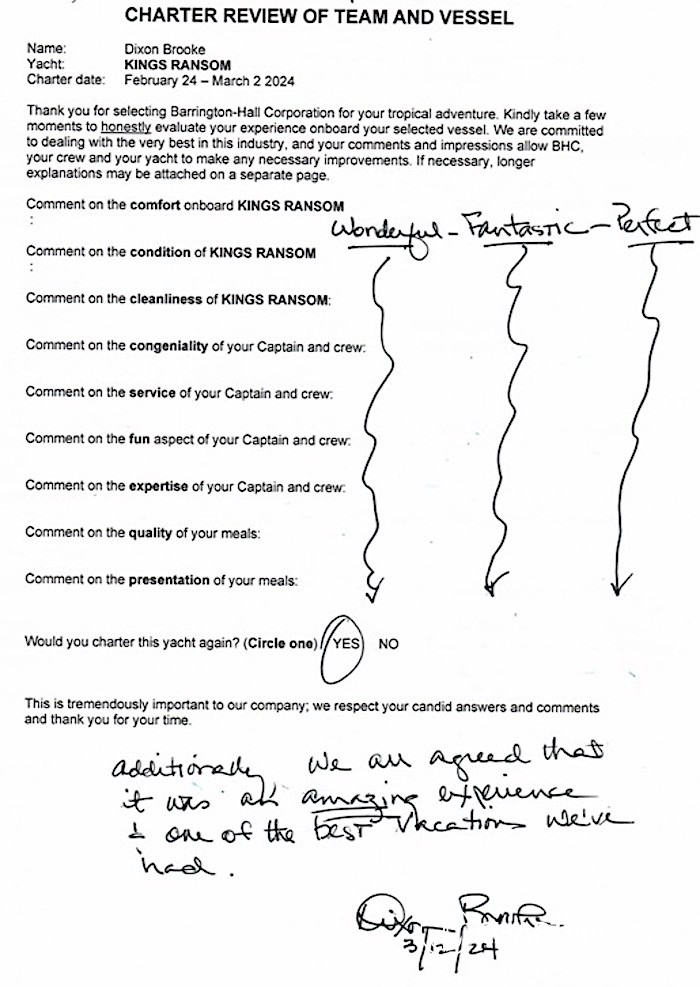 CHARTER REVIEW OF TEAM AND VESSEL
Name: Dixon Brooke
Yacht: KINGS RANSOM
Charter date: February 24 – March 2 2024
Thank you for selecting Barrington-Hall Corporation for your tropical adventure. Kindly take a few
moments to honestly evaluate your experience onboard your selected vessel. We are committed
to dealing with the very best in this industry, and your comments and impressions allow BHC,
your crew and your yacht to make any necessary improvements. If necessary, longer
explanations may be attached on a separate page.
Comment on the comfort onboard KINGS RANSOM
:
Wonderful – Fantastic – Perfect
Comment on the condition of KINGS RANSOM
:
Comment on the cleanliness of KINGS RANSOM:
Comment on the congeniality of your Captain and crew:
Comment on the service of your Captain and crew:
Comment on the fun aspect of your Captain and crew:
Comment on the expertise of your Captain and crew:
Comment on the quality of your meals:
Comment on the presentation of your meals:
Would you charter this yacht again? (Circle one) YES NO
This is tremendously important to our company; we respect your candid answers and comments
and thank you for your time.
Additionally we all agreed that
it was an amazing experience
& one of the best vacations we've
had.
Dixon Brooke
3/12/24